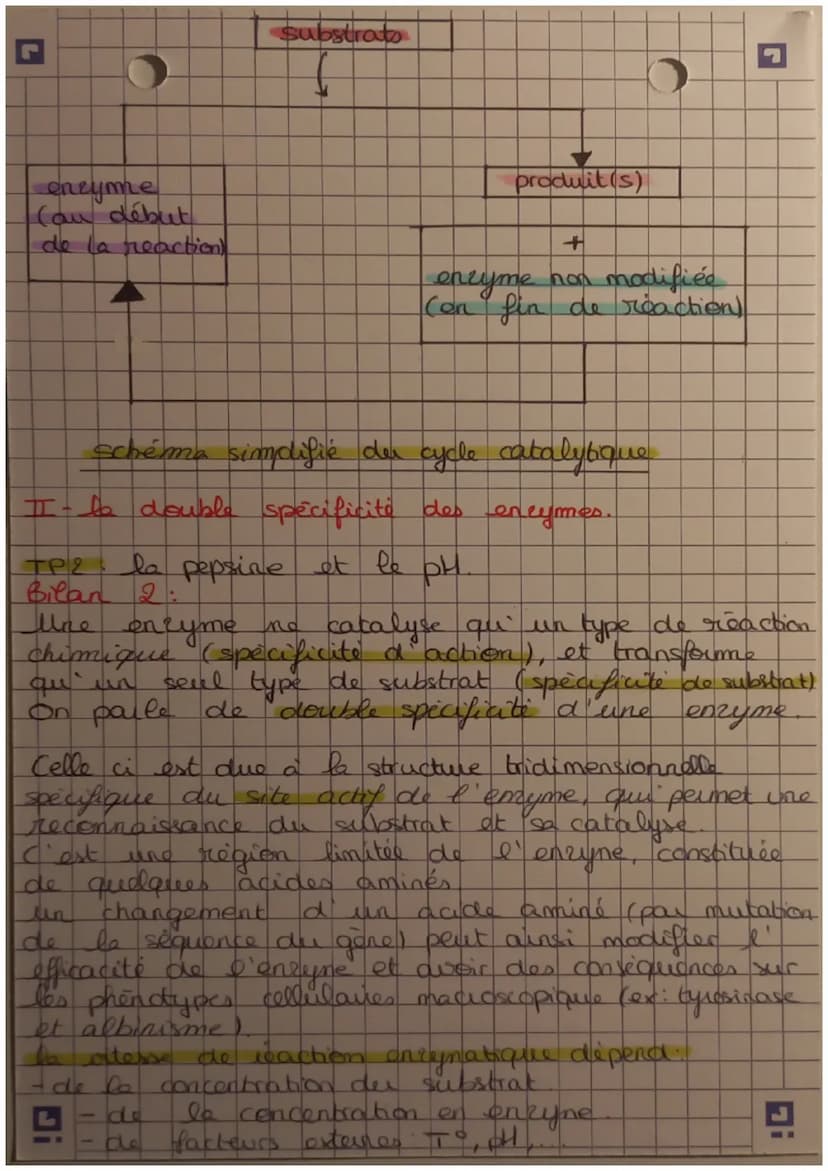 substrats
enzyme
(au début
de la réaction)
produit(s)
+
enzyme non modifiée
(en fin de réaction)
schéma simplifié du cycle catalytique
II - la double spécificité des enzymes.
TP2 : la pepsine et le pH.
Bilan 2 :
Une enzyme ne catalyse qu'un type de réaction
chimique (spécificité d'action), et transforme
qu'un seul type de substrat (spécificité de substrat)
On parle de double spécificité d'une enzyme.
Celle ci est due à la structure tridimensionnelle
spécifique du site actif de l'enzyme, qui permet une
reconnaissance du substrat et sa catalyse.
C'est une région limitée de l'enzyne, constituée
de quelques acides aminés
un changement d'un acide aminé (par mutation
de la séquence du gène) peut ainsi modifier l'
efficacité de l'enzyne et avoir des conséquences sur
les phénotypes cellulaires macroscopique (ex: tyrosinase
et albinisme).
la vitesse de réaction enzymatique dépend :
- de la concentration du substrat
- de la concentration en enzyne.
- de facteurs externes T°, pH,...